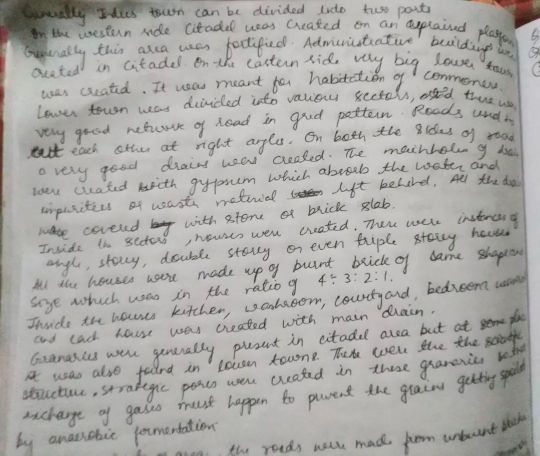 Generally Indus town can be divided into two parts
On the western side Citadel was created on an upraised platform
Generally this area was fortified. Administrative buildings were
created in Citadel. On the eastern side very big lower town
was created. It was meant for habitation of commoners.
Lower town was divided into various sectors, and there was
very good network of road in grid pattern. Roads used to
cut each other at right angles. On both the sides of road
a very good drains were created. The mainholes of drain
were created with gypsum which absorb the water and
impurities or waste material left behind. All the drains
were covered with stone or brick slab.
Inside the sectors, houses were created. There were instances of
single, storey, double storey or even triple storey houses
All the houses were made up of burnt brick of same shape and
size which was in the ratio of 4:3:2:1.
Inside the houses kitchen, washroom, courtyard, bedroom
and each house was created with main drain.
Granaries were generally present in citadel area but at some place
it was also found in lower towns. There were the the
structure. Strategic pores were created in these granaries so that
exchange of gases must happen to prevent the grains getting spoiled
by anaerobic fermentation
the roads were made from unburnt